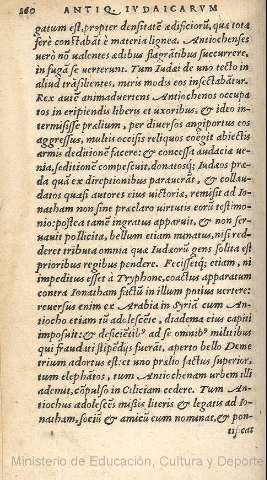 260 ANTIQ. IVDAICARVM
gatum est, propter densitatē ædificiorū, quæ tota
ferè constabāt è materia lignea. Antiochenses
verò nō valentes ædibus flagrātibus succurrere,
in fugā se verterunt. Tum Iudæi de uno tecto in
aliud trāsilientes, maris modis eos insectabātur.
Rex autē animadvertens Antiochenos occupa
tos in eripiendis liberis et uxoribus, & ideo in-
termisisse prælium, per diversos angiportus eos
aggressus, multis occisis reliquos coëgit abiectis
armis deditionē facere: & concessa audacia ue-
nia, seditionē compescuit, donatosq; Iudæos præ-
da quā ex direptionibus parauerāt, & collau-
datos quasi autores eius uictoria, remisit ad Io-
nathan non sine præclaro virtutis eorū testimo-
nio: postea tamē ingratus apparuit, & non ser-
vauit pollicita, bellum etiam minatus, nisi red-
deret tributa omnia quæ Iudæorū gens solita est
prioribus regibus pendere. Fecissetq; etiam, ni
impeditus esset à Tryphone, coactus apparatum
contra Ionathan factū in illum potius vertere:
reversus enim ex Arabia in Syriā cum An-
tiocho etiam tū adolescēte, diadema eius capiti
imposuit: & deficiētib⁹ ad se omnib⁹ militibus
qui fraudati stipēdijs fuerāt, aperto bello Deme
trium adortus est: et uno prælio factus superior,
tum elephātos, tum Antiochenam urbem illi
ademit, cōpulso in Ciliciam cedere. Tum An-
tiochus adolescēs missis literis & legatis ad Io-
nathan, sociū & amicū cum nominat, & pon-
tificat
Ministerio de Educación, Cultura y Deporte